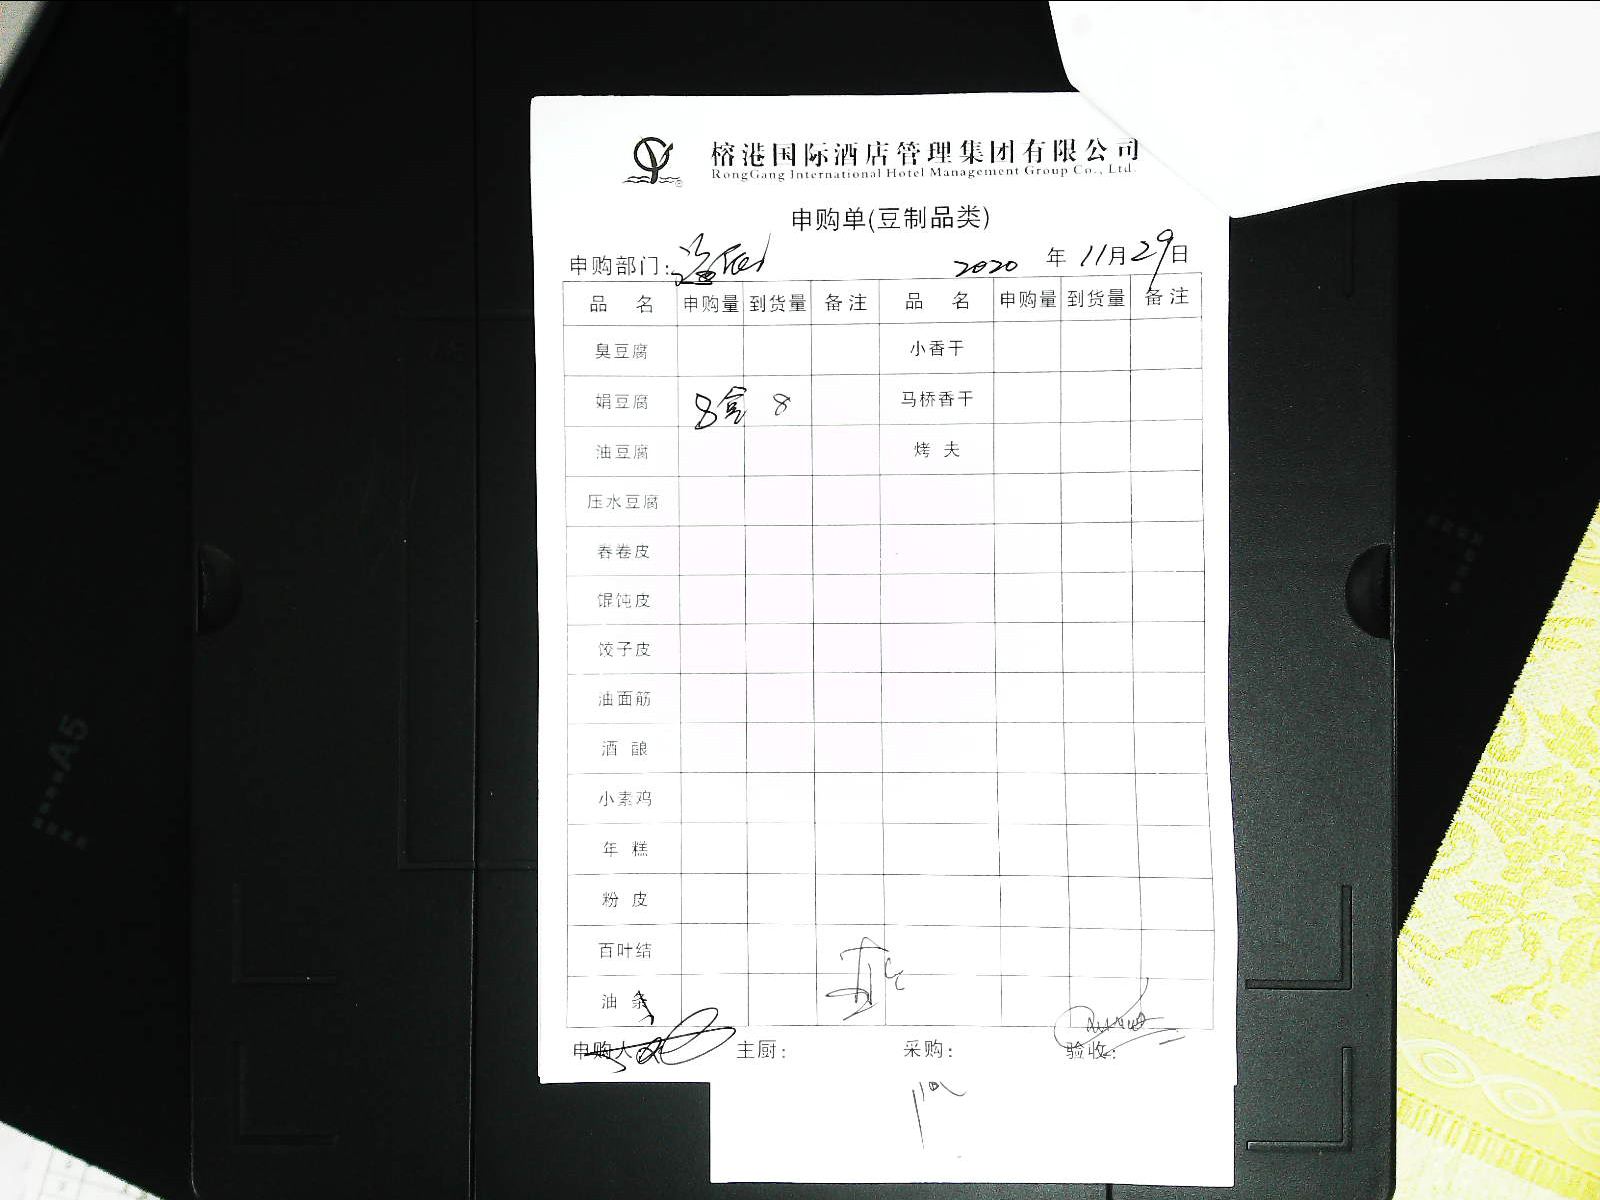 榕港国际酒店管理集团有限公司
RongGang International Hotel Management Group Co., Ltd.
申购单(豆制品类)
申购部门: 2020 年 11月29日
品 名 申购量 到货量 备注 品 名 申购量 到货量 备注
臭豆腐 小香干
娟豆腐 8盒 8 马桥香干
油豆腐 烤 夫
压水豆腐
春卷皮
馄饨皮
饺子皮
油面筋
酒 酿
小素鸡
年 糕
粉 皮
百叶结
油 条
申购人 主厨: 采购: 验收:
A5